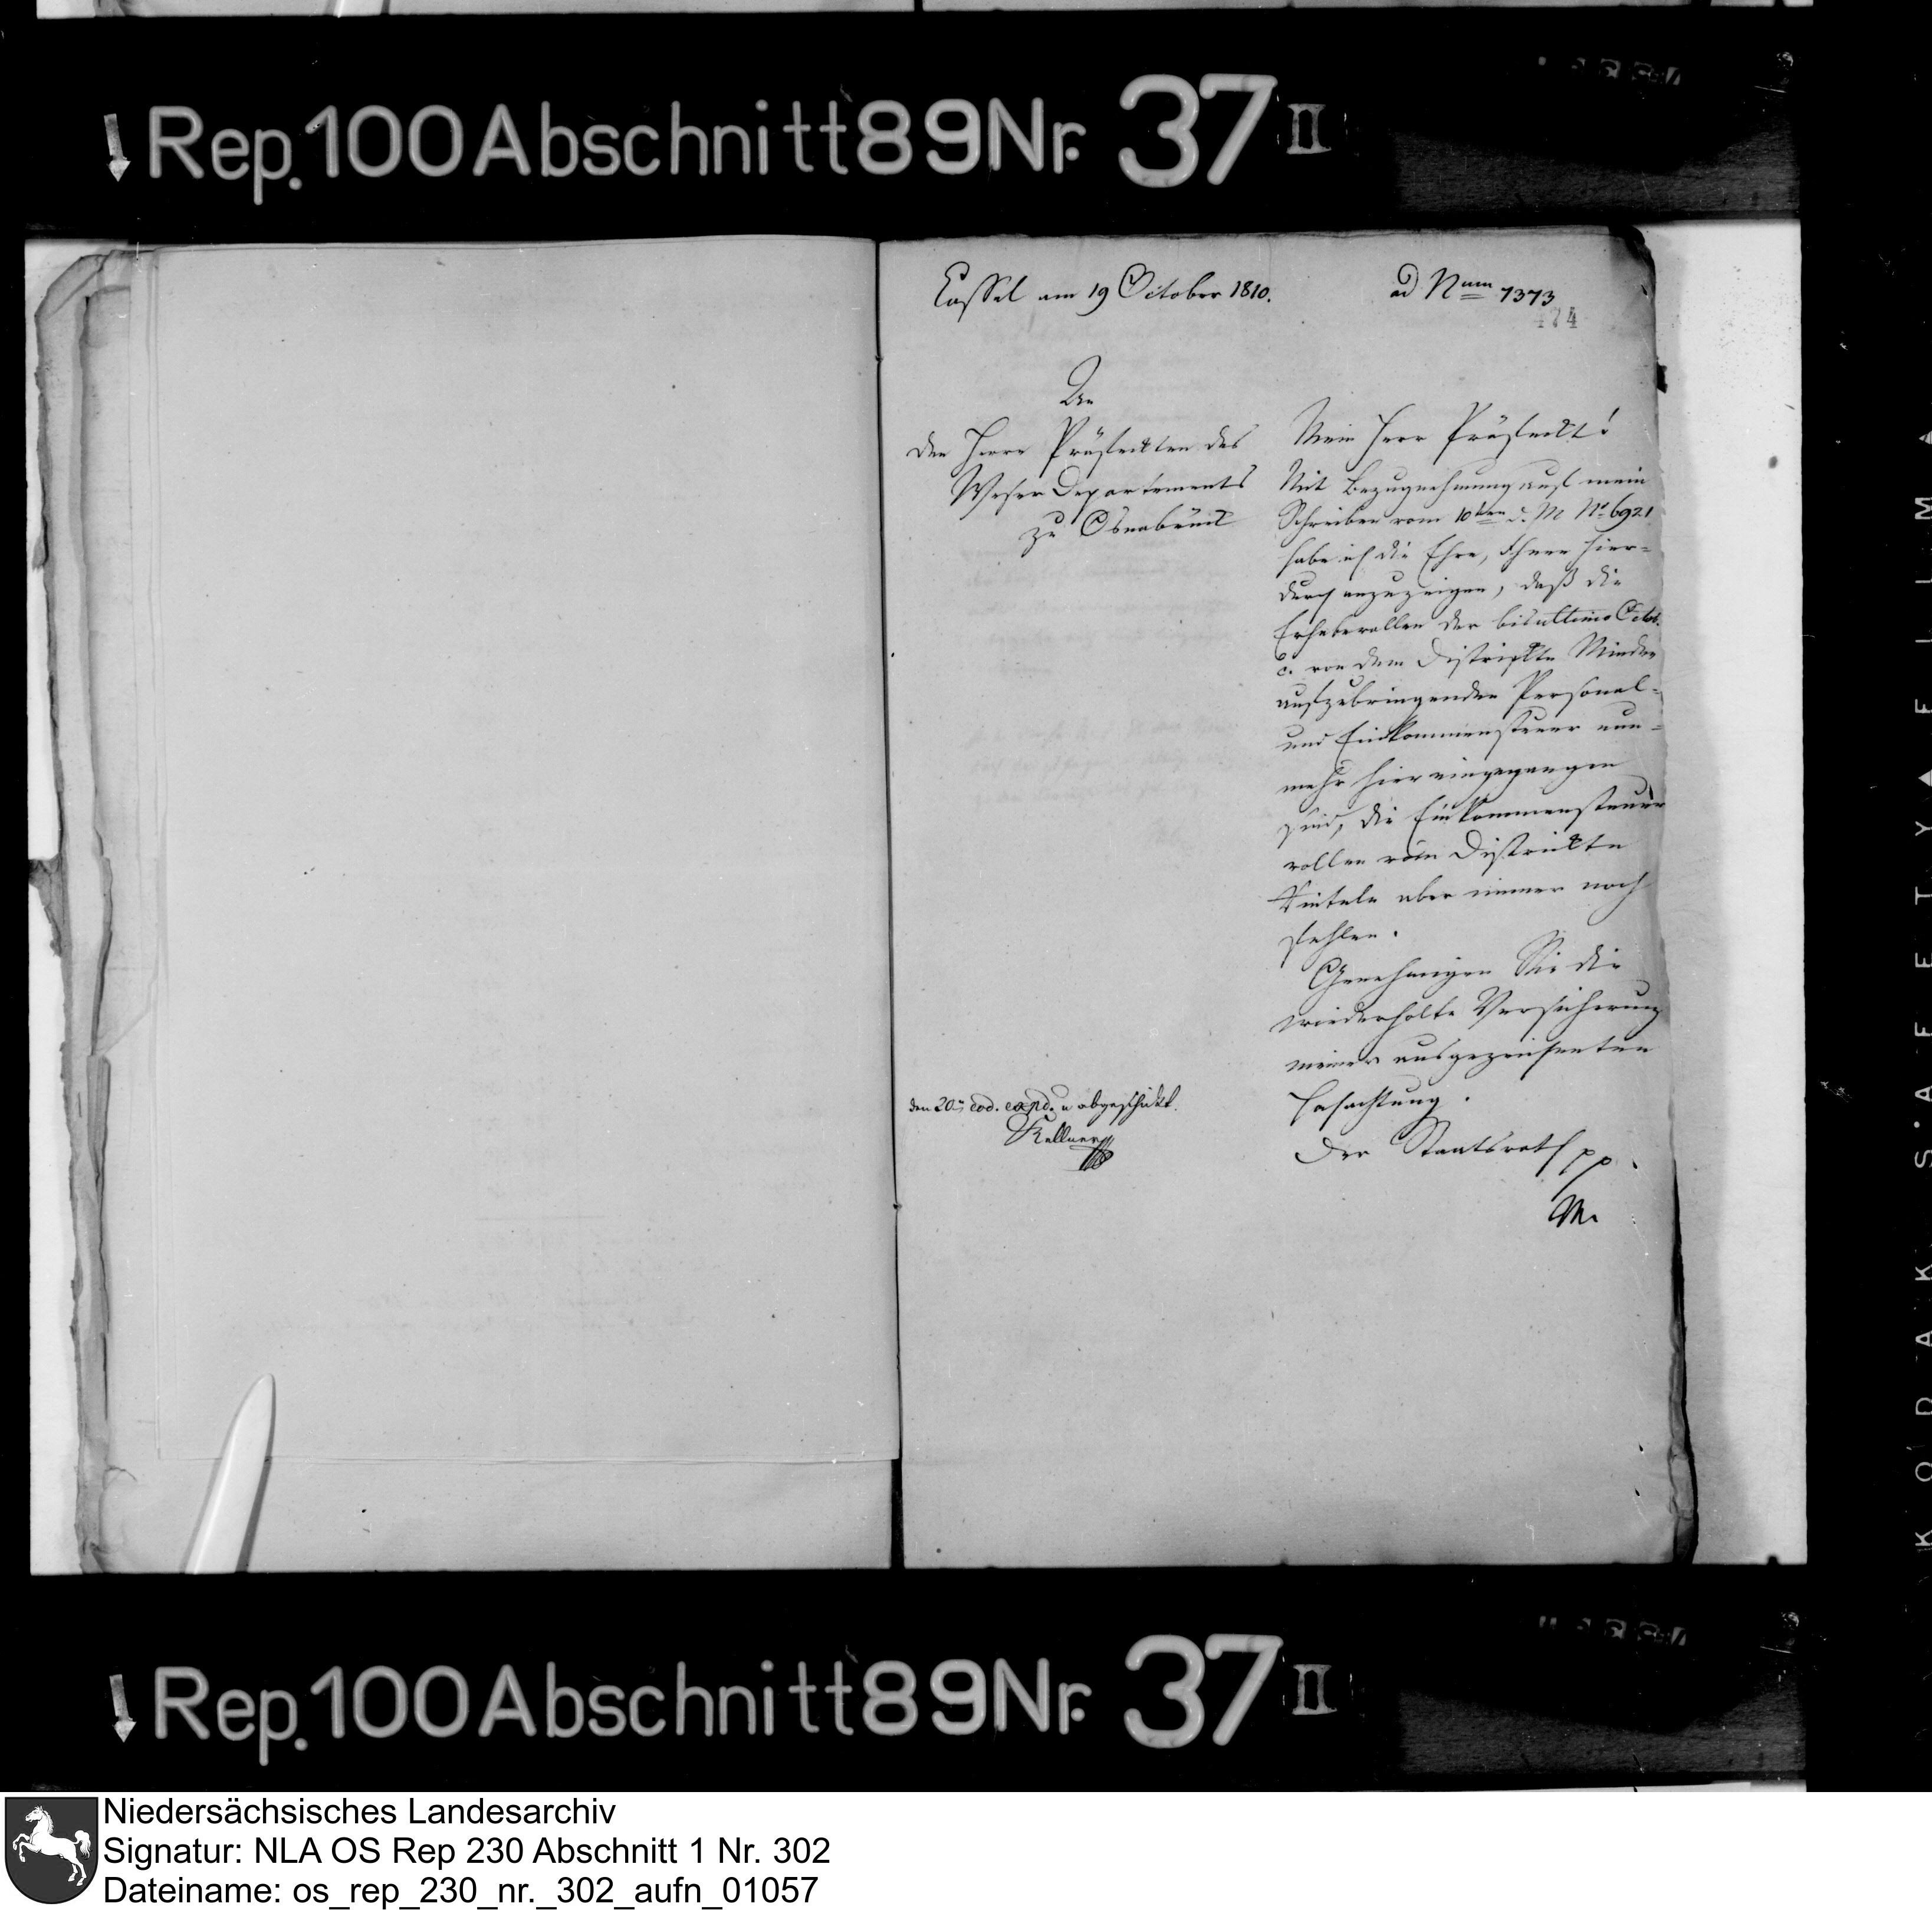 Rep. 100 Abschnitt 89 Nr. 37 II
Cassel am 19 October 1810.
ad Num 7373
474
An
den Herrn Präfeckten des
Weser Departements
zu Osnabrück
Mein Herr Präfeckt!
Mit Bezugnehmung auf mein
Schreiben vom 10ten d. M. No 6921
habe ich die Ehre, Ihnen hier-
durch anzuzeigen, daß die
Erheberollen der bis ultimo Octob.
c. von dem Districkte Minden
aufzubringenden Personal-
und Einkommensteuer nun-
mehr hier eingegangen
sind, die Einkommensteuer
rollen vom Districkte
Rinteln aber immer noch
fehlen.
Genehmigen Sie die
wiederholte Versicherung
meiner ausgezeichneten
Hochachtung.
Der Staatsrath pp.
M.
den 20. eod. exped. u abgeschickt.
Kellner
Rep. 100 Abschnitt 89 Nr. 37 II
KODAK SAFETY FILM
Niedersächsisches Landesarchiv
Signatur: NLA OS Rep 230 Abschnitt 1 Nr. 302
Dateiname: os_rep_230_nr._302_aufn_01057